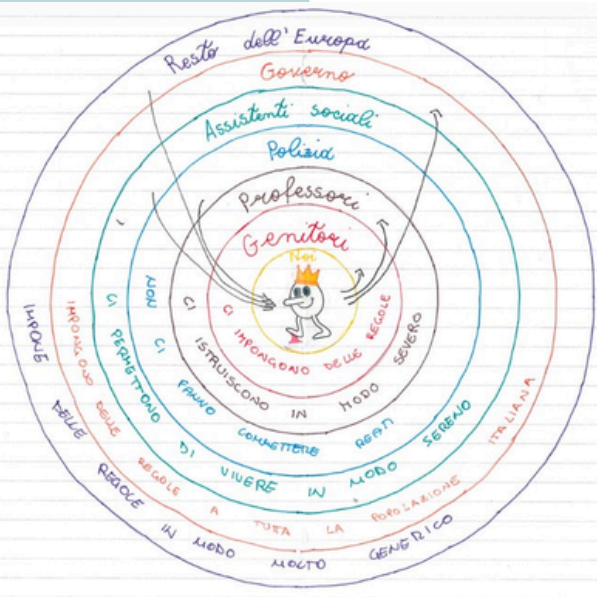 Resto dell'Europa
Governo
Assistenti sociali
Polizia
Professori
Genitori
Noi
CI IMPONGONO DELLE REGOLE
CI ISTRUISCONO IN MODO SEVERO
NON CI FANNO COMMETTERE REATI
CI PERMETTONO DI VIVERE IN MODO SERENO
IMPONGONO DELLE REGOLE A TUTA LA POPOLAZIONE ITALIANA
IMPONE DELLE REGOLE IN MODO MOLTO GENERICO